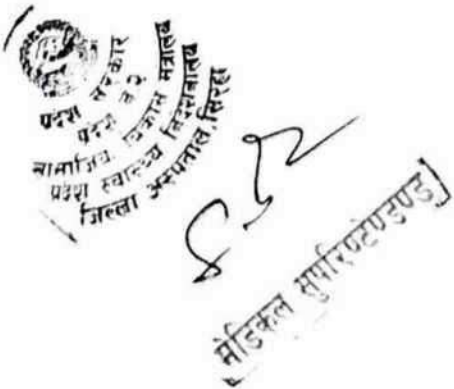 प्रदेश सरकार
प्रदेश नं. २
सामाजिक विकास मंत्रालय
प्रदेश स्वास्थ्य निर्देशनालय
जिल्ला अस्पताल, सिरहा
मेडिकल सुपरिण्टेण्डेण्ट